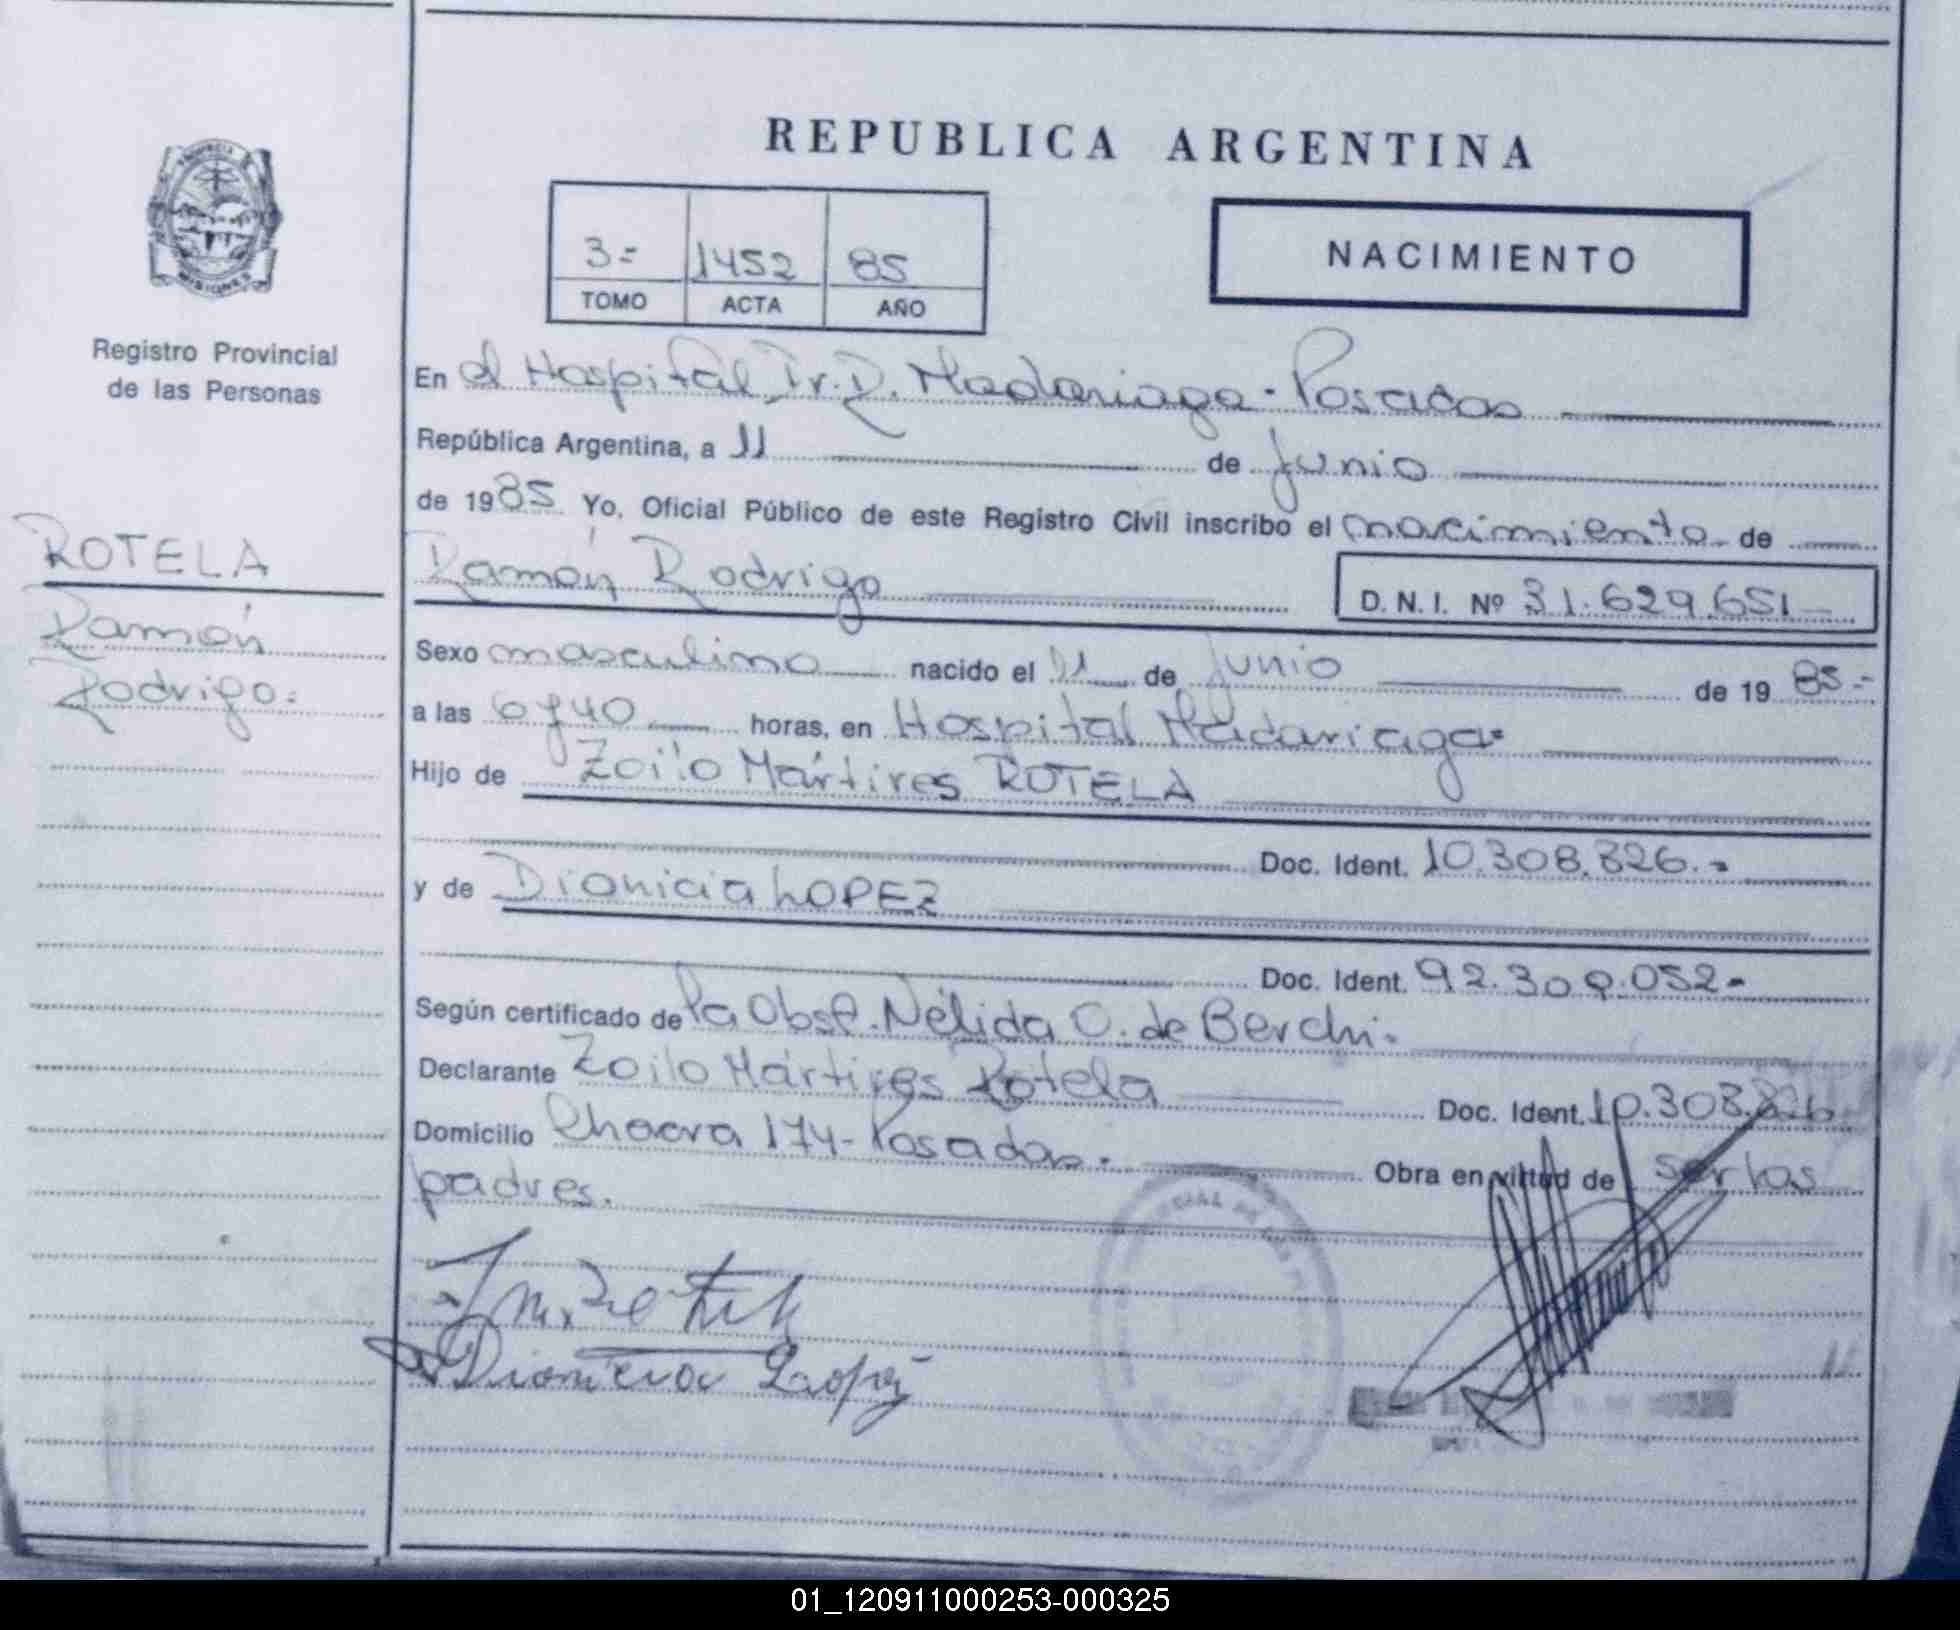 REPUBLICA ARGENTINA
3=
1452
85
TOMO
ACTA
AÑO
NACIMIENTO
PROVINCIA DE
MISIONES
Registro Provincial
de las Personas
ROTELA
Ramón
Rodrigo.
En el Hospital Dr. R. Madariaga - Posadas
República Argentina, a 11 de Junio
de 1985 Yo, Oficial Público de este Registro Civil inscribo el nacimiento de
Ramón Rodrigo D. N. I. Nº 31.629.651
Sexo masculino nacido el 11 de Junio de 19 85.-
a las 6 y 40 horas, en Hospital Madariaga
Hijo de Zoilo Mártires ROTELA
Doc. Ident. 10.308.826.-
y de Dionicia LOPEZ
Doc. Ident. 92.309.052-
Según certificado de la Obst. Nélida C. de Berchi.
Declarante Zoilo Mártires Rotela Doc. Ident. 10.308.826
Domicilio Chacra 174 - Posadas. Obra en virtud de ser los
padres.
Dionicia Lopez
01_120911000253-000325